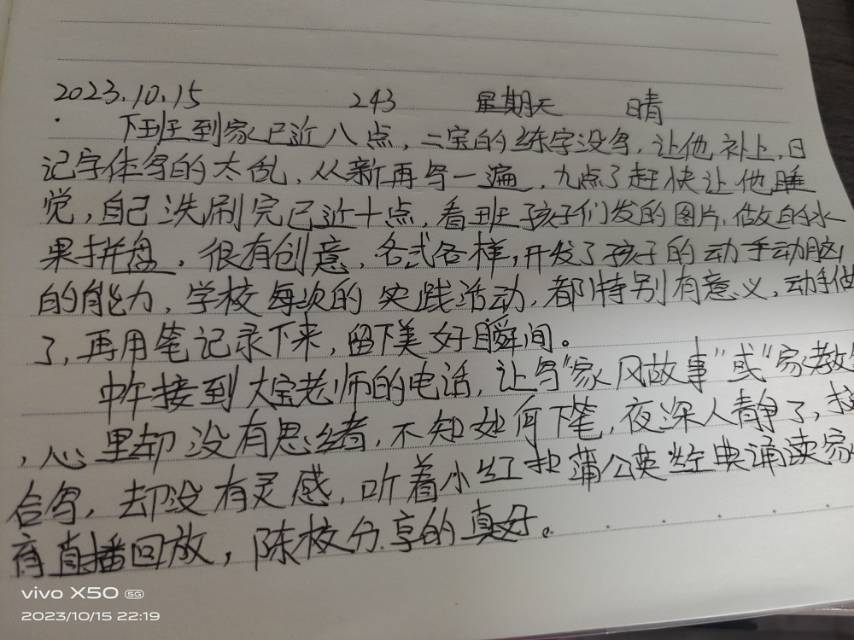 2023.10.15 243 星期天 晴
下班到家已近八点,二宝的练字没写,让他补上,日
记字体写的太乱,从新再写一遍,九点了赶快让他睡
觉,自己洗刷完已近十点,看班孩子们发的图片,做的水
果拼盘,很有创意,各式各样,开发了孩子的动手动脑
的能力,学校每次的实践活动,都特别有意义,动手做
了,再用笔记录下来,留下美好瞬间。
中午接到大宝老师的电话,让写“家风故事”或“家教
,心里却没有思绪,不知如何下笔,夜深人静了,
合写,却没有灵感,听着小红抱蒲公英经典诵读家
育直播回放,陈校分享的真好。
vivo X50 5G
2023/10/15 22:19